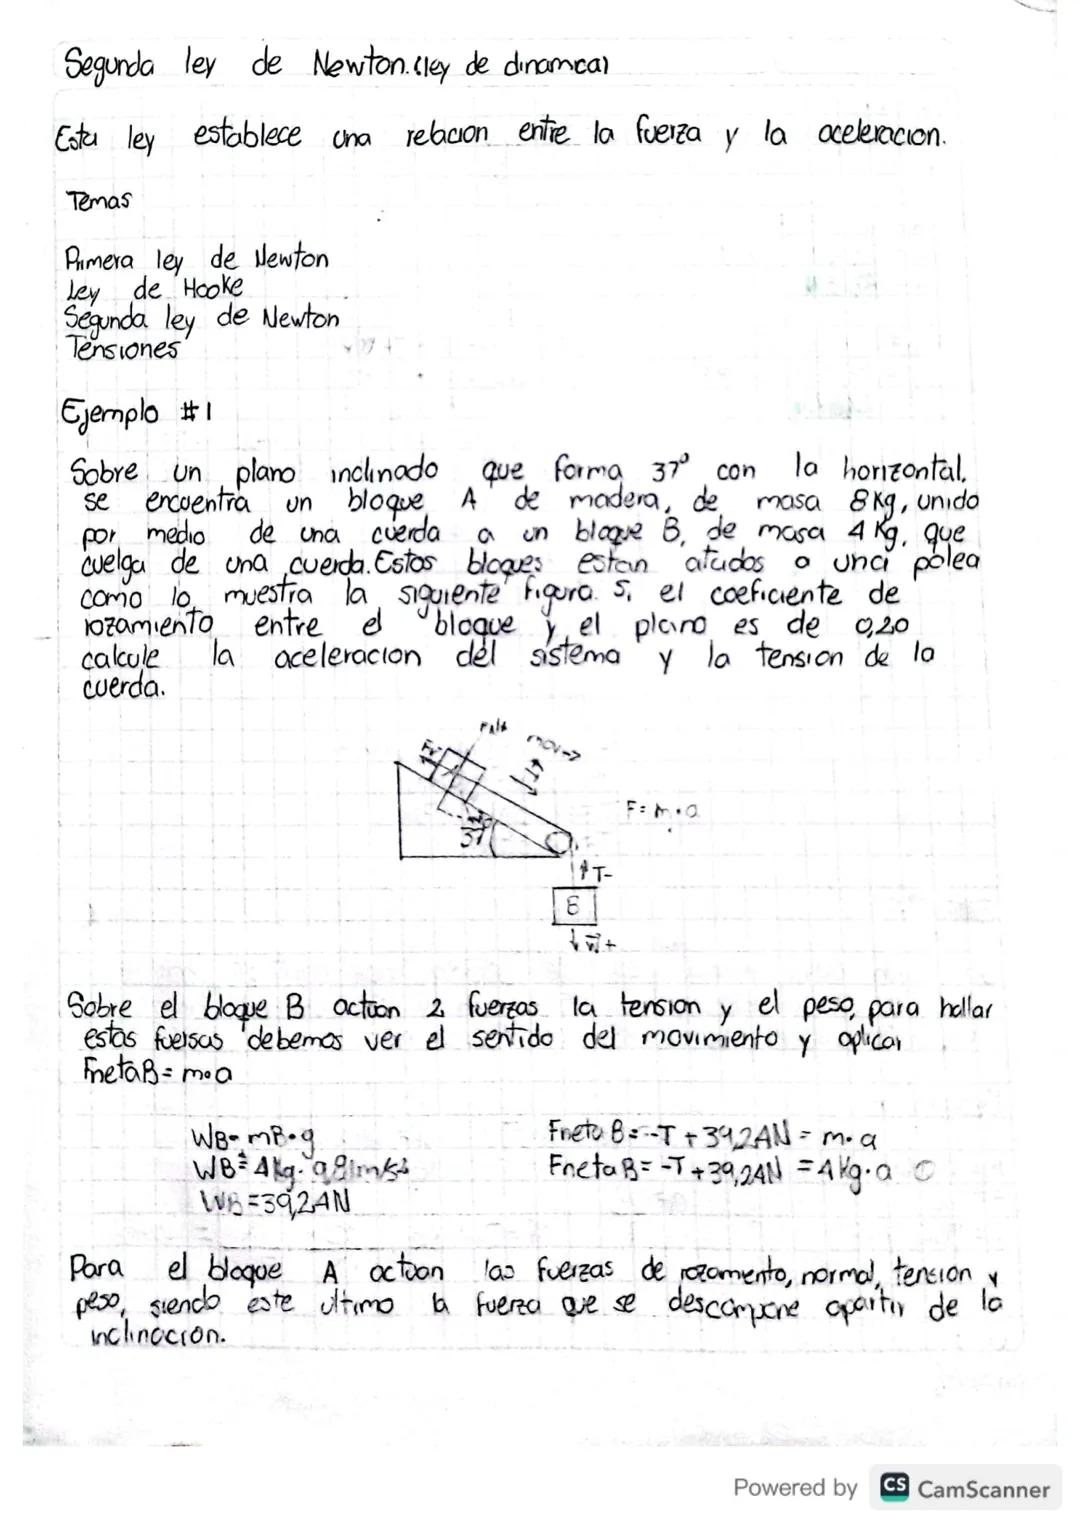 Segunda ley de Newton. (ley de dinamica)
Esta ley establece una relacion entre la fuerza y la aceleracion.
Temas
Primera ley de Newton
Ley de Hooke
Segunda ley de Newton
Tensiones
Ejemplo #1
Sobre un plano inclinado que forma 37° con la horizontal,
se encuentra un bloque A de madera, de masa 8Kg, unido
por medio de una cuerda a un bloque B, de masa 4 Kg, que
cuelga de una cuerda. Estos bloques estan atados a una polea
como lo muestra la siguiente figura. Si el coeficiente de
rozamiento entre el bloque y el plano es de 0,20
calcule la aceleracion del sistema y la tension de la
cuerda.
mov→
Fr
37
F = m . a
T-
B
W+
Sobre el bloque B actúan 2 fuerzas la tension y el peso, para hallar
estas fuersas debemos ver el sentido del movimiento y aplicar
FnetaB = m.a
WB = mB.g
WB = 4kg. 9,81m/s²
WB = 39,24N
Fneta B = -T + 39,24N = m.a
Fneta B = -T + 39,24N = 4Kg.a
Para el bloque A actúan las fuerzas de rozamento, normal, tension y
peso, siendo este ultimo la fuerza que se descompone apartir de la
inclinacion.
Powered by CS CamScanner